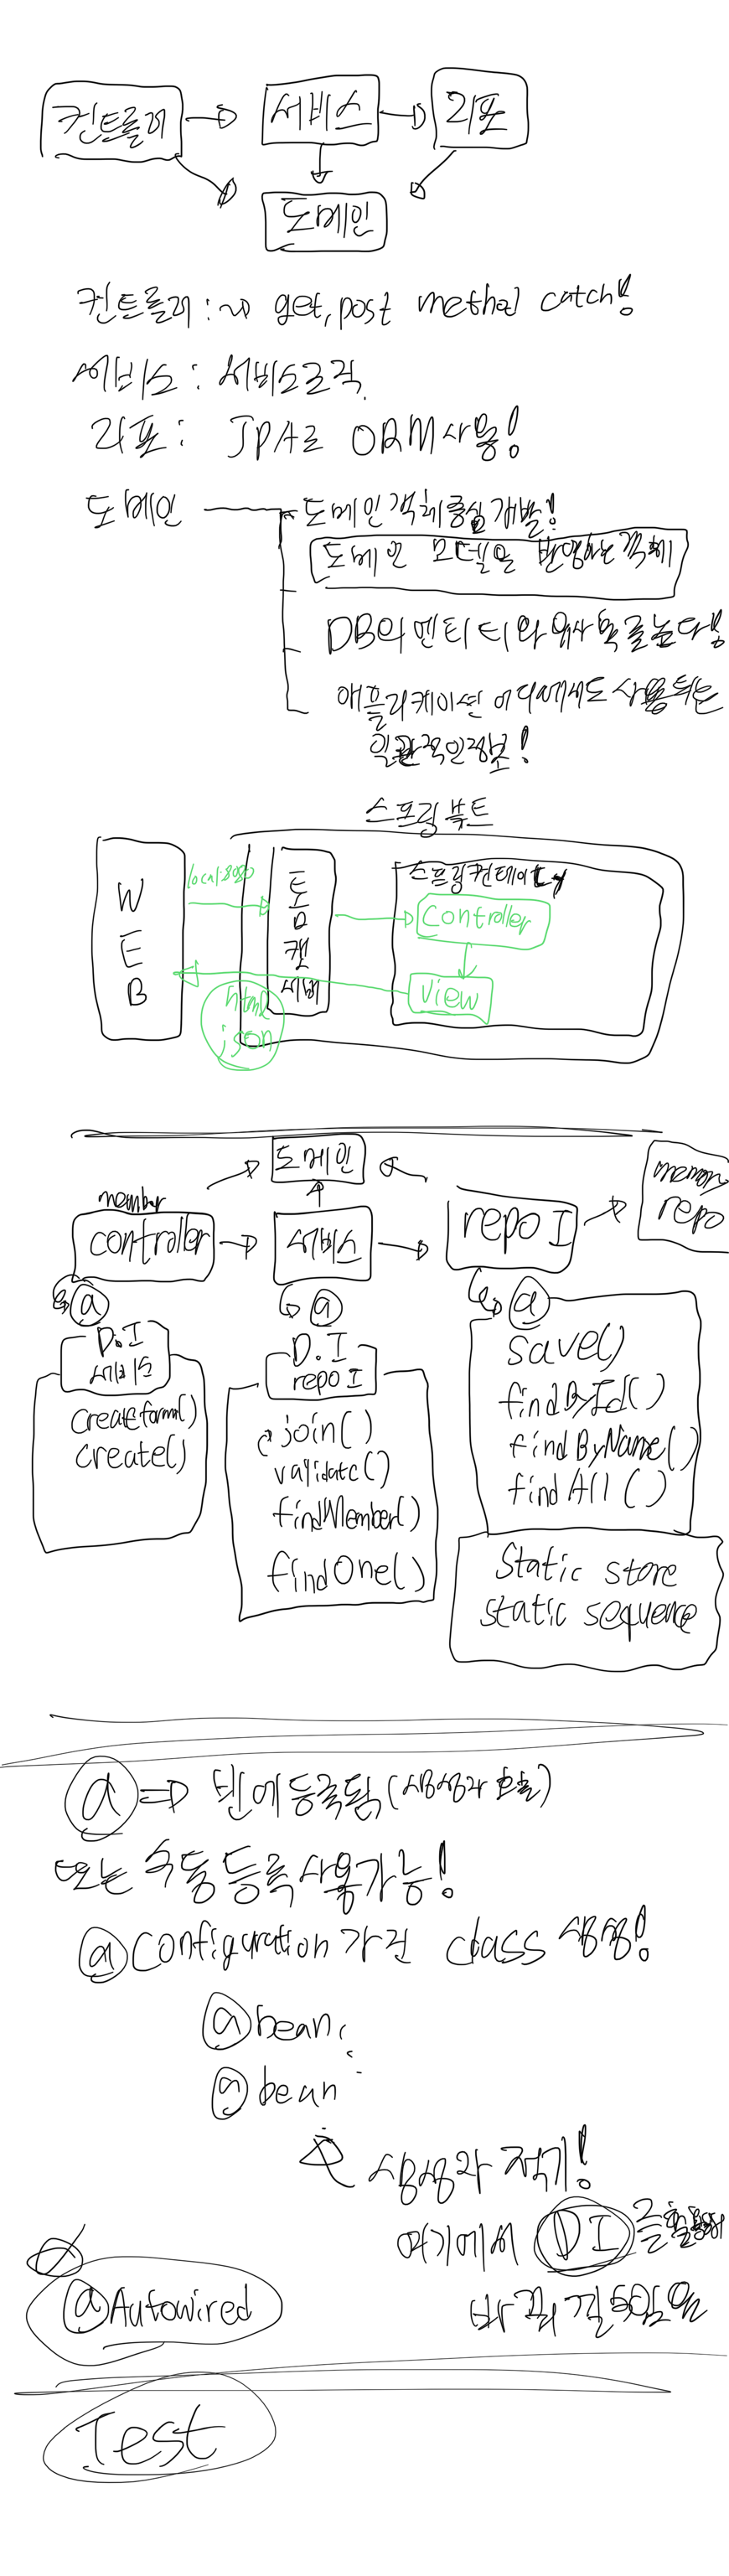 컨트롤러 서비스 리포
도메인
컨트롤러 : get, post method catch!
서비스 : 서비스로직
리포 : JPA로 ORM사용!
도메인 도메인 객체 중심 개발!
도메인 모델을 반영하는 객체
DB의 엔티티와 유사
애플리케이션 어디에서도 사용되는
일관적인정보!
스프링 부트
WEB
local:8080
톰캣 서버
스프링컨테이너
Controller
View
html
json
도메인
member
controller
서비스
repo I
memory
repo
@ @ @
D.I
서비스
createform()
create()
D.I
repo I
join()
validate()
findMember()
findOne()
save()
findById()
findByName()
findAll()
Static store
static sequence
@ => 빈에등록됨 (생성자 호출)
또는 수동등록사용가능!
@Configuration 가진 class 생성!
@bean
@bean
생성자 적기!
여기에서 DI 를활용해
바꿔
@Autowired
Test